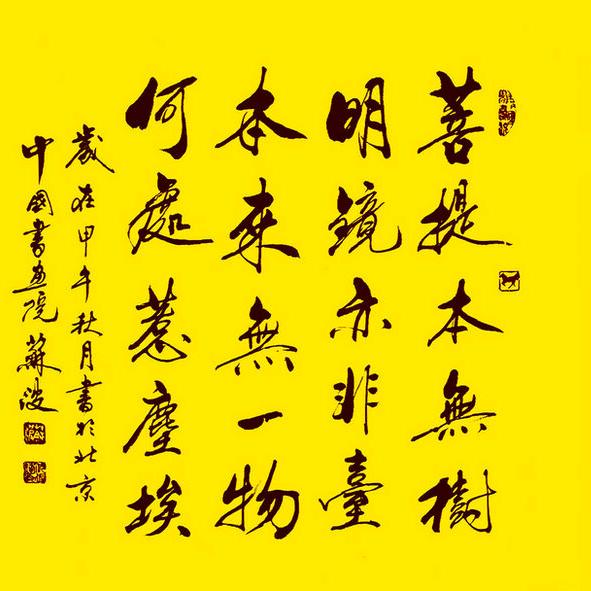 菩提本無樹
明鏡亦非臺
本來無一物
何處惹塵埃
歲在甲午秋月書於北京
中國書画院蘇波